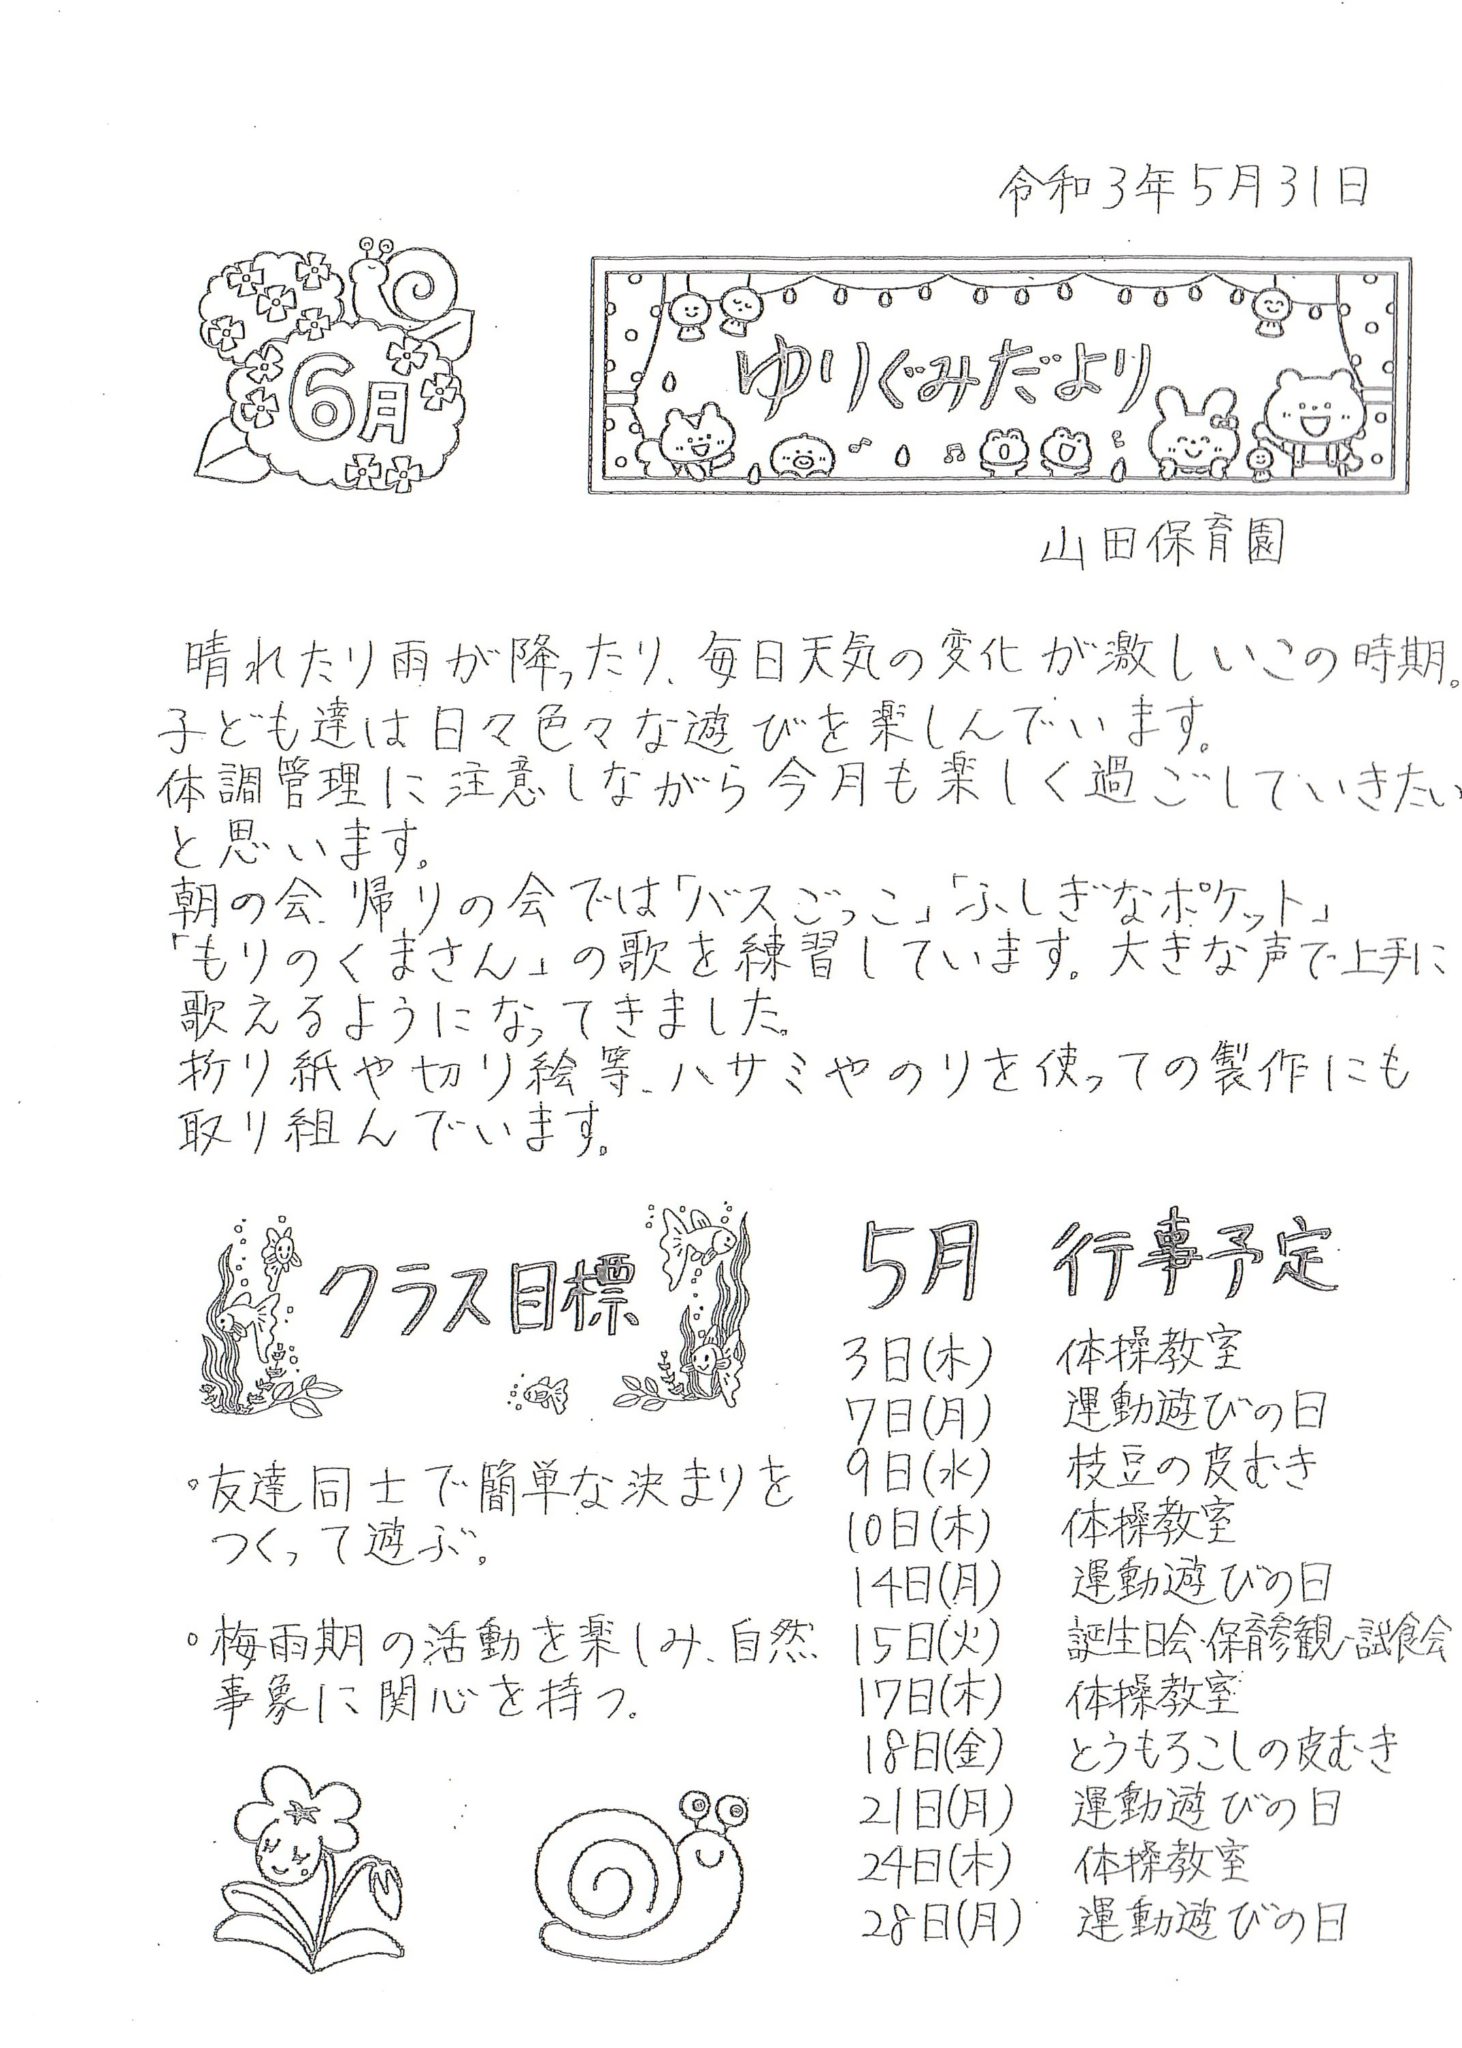 令和3年5月31日
6月
ゆりぐみだより
山田保育園
晴れたり雨が降ったり、毎日天気の変化が激しいこの時期。
子ども達は日々色々な遊びを楽しんでいます。
体調管理に注意しながら今月も楽しく過ごしていきたい
と思います。
朝の会、帰りの会では「バスごっこ」「ふしぎなポケット」
「もりのくまさん」の歌を練習しています。大きな声で上手に
歌えるようになってきました。
折り紙や切り絵等、ハサミやのりを使っての製作にも
取り組んでいます。
クラス目標
・友達同士で簡単な決まりを
つくって遊ぶ。
・梅雨期の活動を楽しみ、自然
事象に関心を持つ。
5月 行事予定
3日(木) 体操教室
7日(月) 運動遊びの日
9日(水) 枝豆の皮むき
10日(木) 体操教室
14日(月) 運動遊びの日
15日(火) 誕生日会・保育参観・試食会
17日(木) 体操教室
18日(金) とうもろこしの皮むき
21日(月) 運動遊びの日
24日(木) 体操教室
28日(月) 運動遊びの日